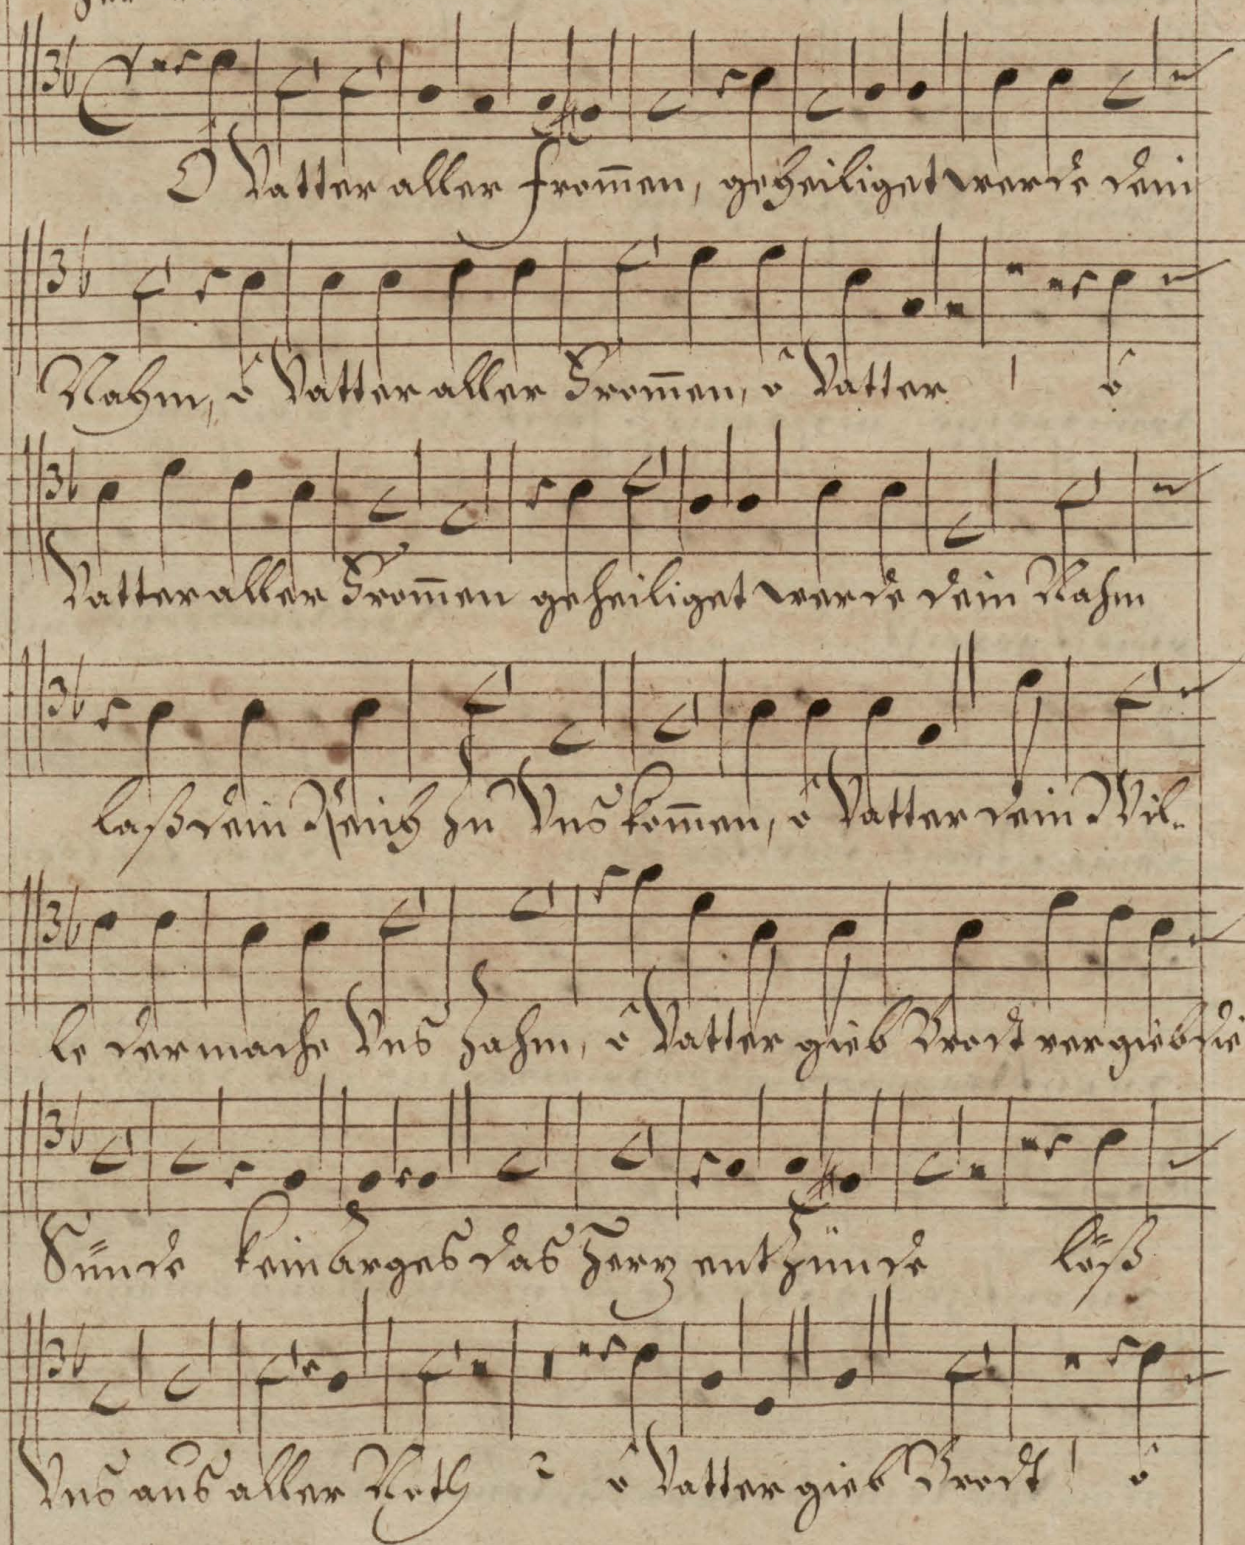 O Vatter aller from̅en, geheiliget werde dein
Nahm, ô Vatter aller From̅en, ô Vatter ô
Vatter aller From̅en geheiliget werde dein Nahm
laß dein Reich zu Vns kom̅en, ô Vatter dein Wil-
le der mache Vns zahm, ô Vatter gieb Brodt vergieb die
Sünde kein Arges das Hertz entzünde löß
Vns aus aller Noth ô Vatter gieb Brodt ô